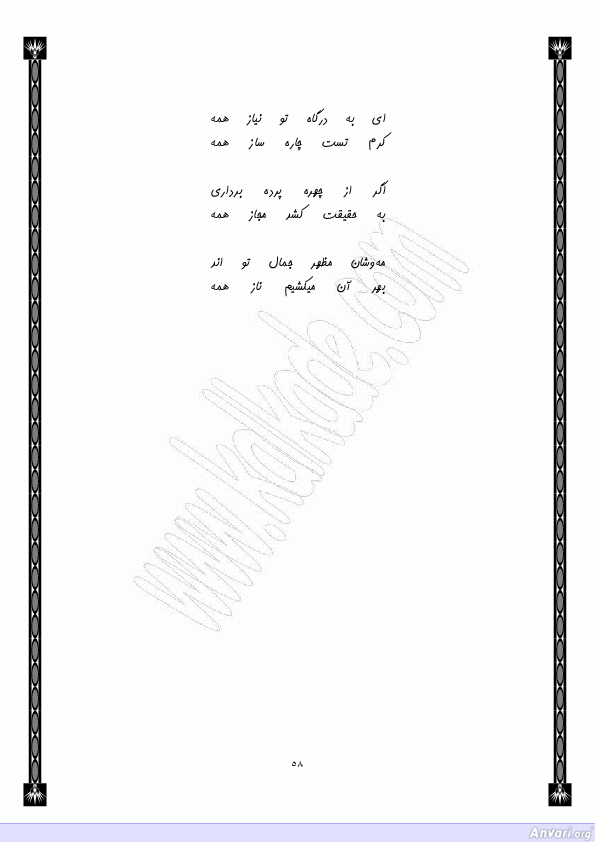 ای به درگاه تو نیاز همه
کرم تست چاره ساز همه
اگر از چهره پرده برداری
به حقیقت کشد مجاز همه
مه‌وشان مظهر جمال تو اند
بهر آن میکشیم ناز همه
www.kdkade.com
۵۸
Anvari.org